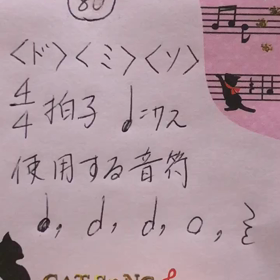 80
〈ド〉〈ミ〉〈ソ〉
4/4拍子
使用する音符
CAT SONG